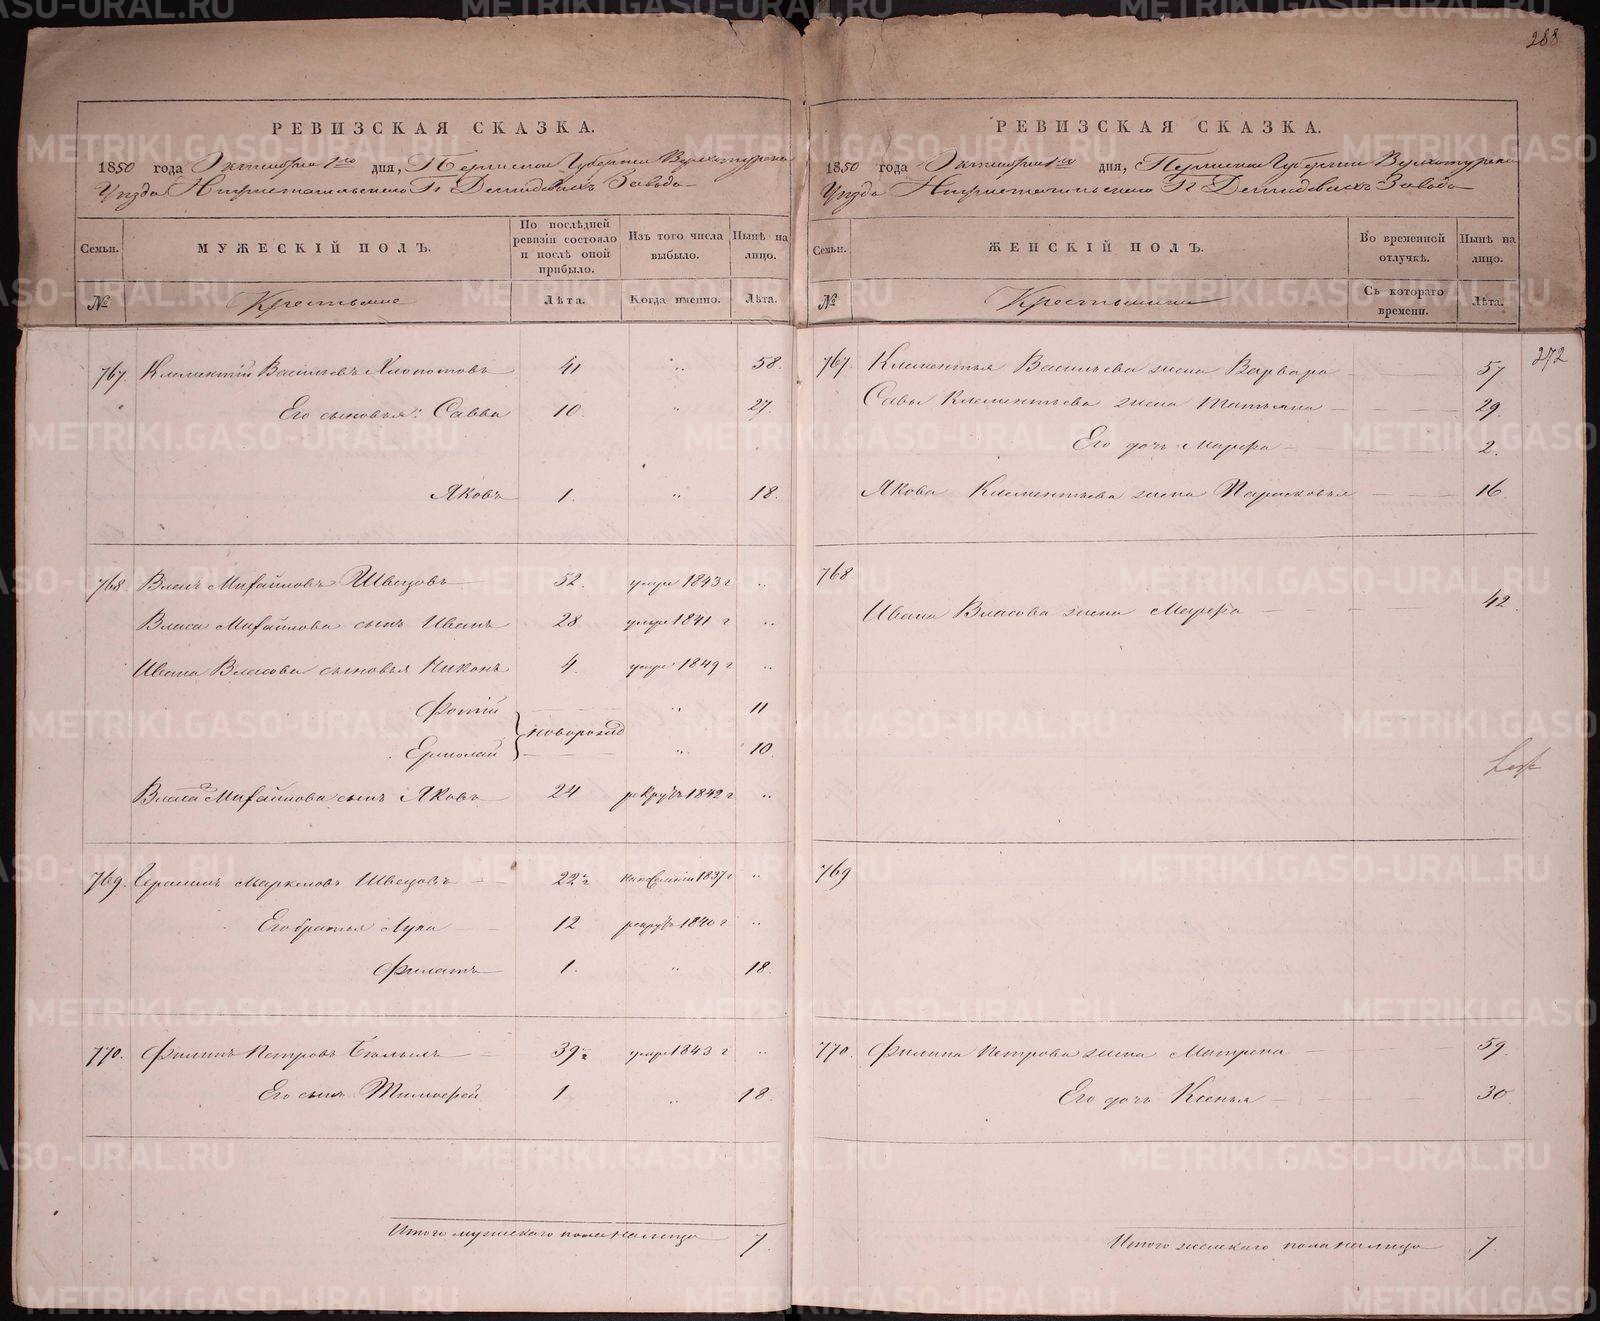 288
РЕВИЗСКАЯ СКАЗКА.
1850 года Октября 1го дня, Пермской Губернии Верхотурскаго
Уезда Нижнетагильскаго Гг Демидовыхъ Завода
Семьи. МУЖЕСКІЙ ПОЛЪ. По послѣдней ревизіи состояло и послѣ оной прибыло. Изъ того числа выбыло. Нынѣ на лицо.
№ Крестьяне Лѣта. Когда именно. Лѣта.
767. Климентій Васильевъ 41 " 58.
Его сыновья: Савва 10. " 27.
Яковъ 1. " 18.
768. Власъ Михайловъ Швецовъ 52. умре 1843 г "
Власа Михайлова сынъ Иванъ 28 умре 1841 г "
Ивана Власова сыновья Никонъ 4 умре 1849 г "
Фотій " 11
новорожд
Ермолай " 10.
Власа Михайлова сынъ Яковъ 24 рекрутъ 1842 г "
769. Маркеловъ Швецовъ 22 1/2 1837 г "
Его братья Лука 12 рекрутъ 1840 г "
Филатъ 1. " 18.
770. Филипъ Петровъ 39 1/2 умре 1843 г "
Его сынъ Тимофей 1 " 18.
Итого мужескаго пола налицо 7.
РЕВИЗСКАЯ СКАЗКА.
1850 года Октября 1го дня, Пермской Губерніи Верхотурскаго
Уезда Нижнетагильскаго Гг Демидовыхъ Завода
Семьи. ЖЕНСКІЙ ПОЛЪ. Во временной отлучкѣ. Нынѣ на лицо.
№ Крестьянки Съ котораго времени. Лѣта.
272
767. Климентья Васильева жена Варвара 57
Савы Климентьева жена Татьяна 29.
Его дочь Марфа 2.
Якова Климентьева жена Парасковья 16
768
Ивана Власова жена Марфа 42.
769
770. Филипа Петрова жена Матрена 59.
Его дочь Ксенья 30.
Итого женскаго пола налицо 7.
METRIKI.GASO-URAL.RU